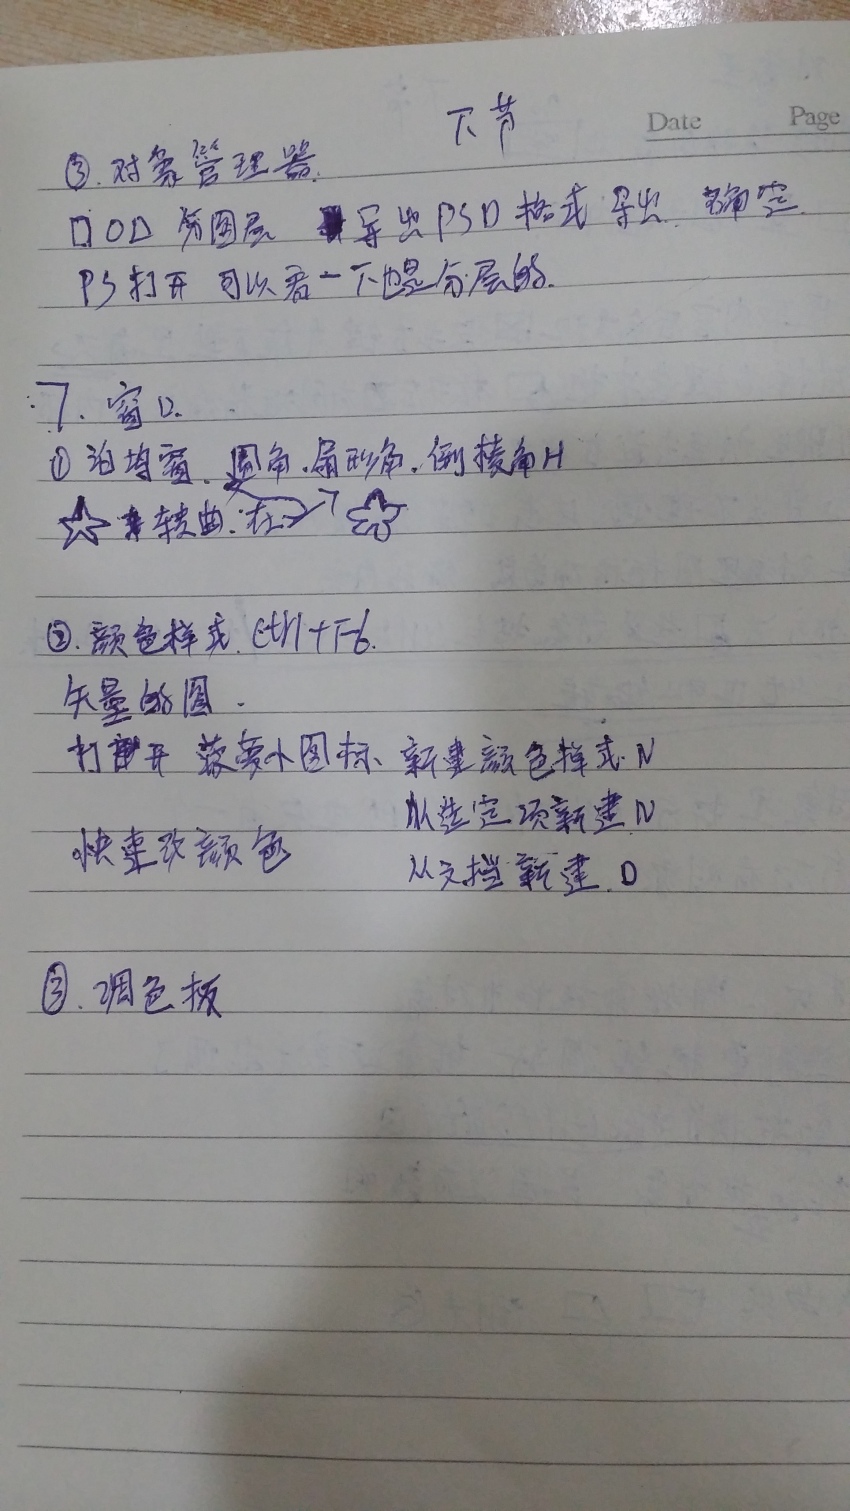 下节
Date Page
③.对象管理器.
口O△ 分图层 导出PSD格式 导出 确定
PS打开 可以看一下也是分层的.
7.窗口.
①泊坞窗.圆角.扇形角.倒棱角H
转曲.在
②.颜色样式.Ctrl+F6.
矢量的图.
打开 菠萝小图标、新建颜色样式.N
从选定项新建.N
快速改颜色
从文档新建.D
③.调色板